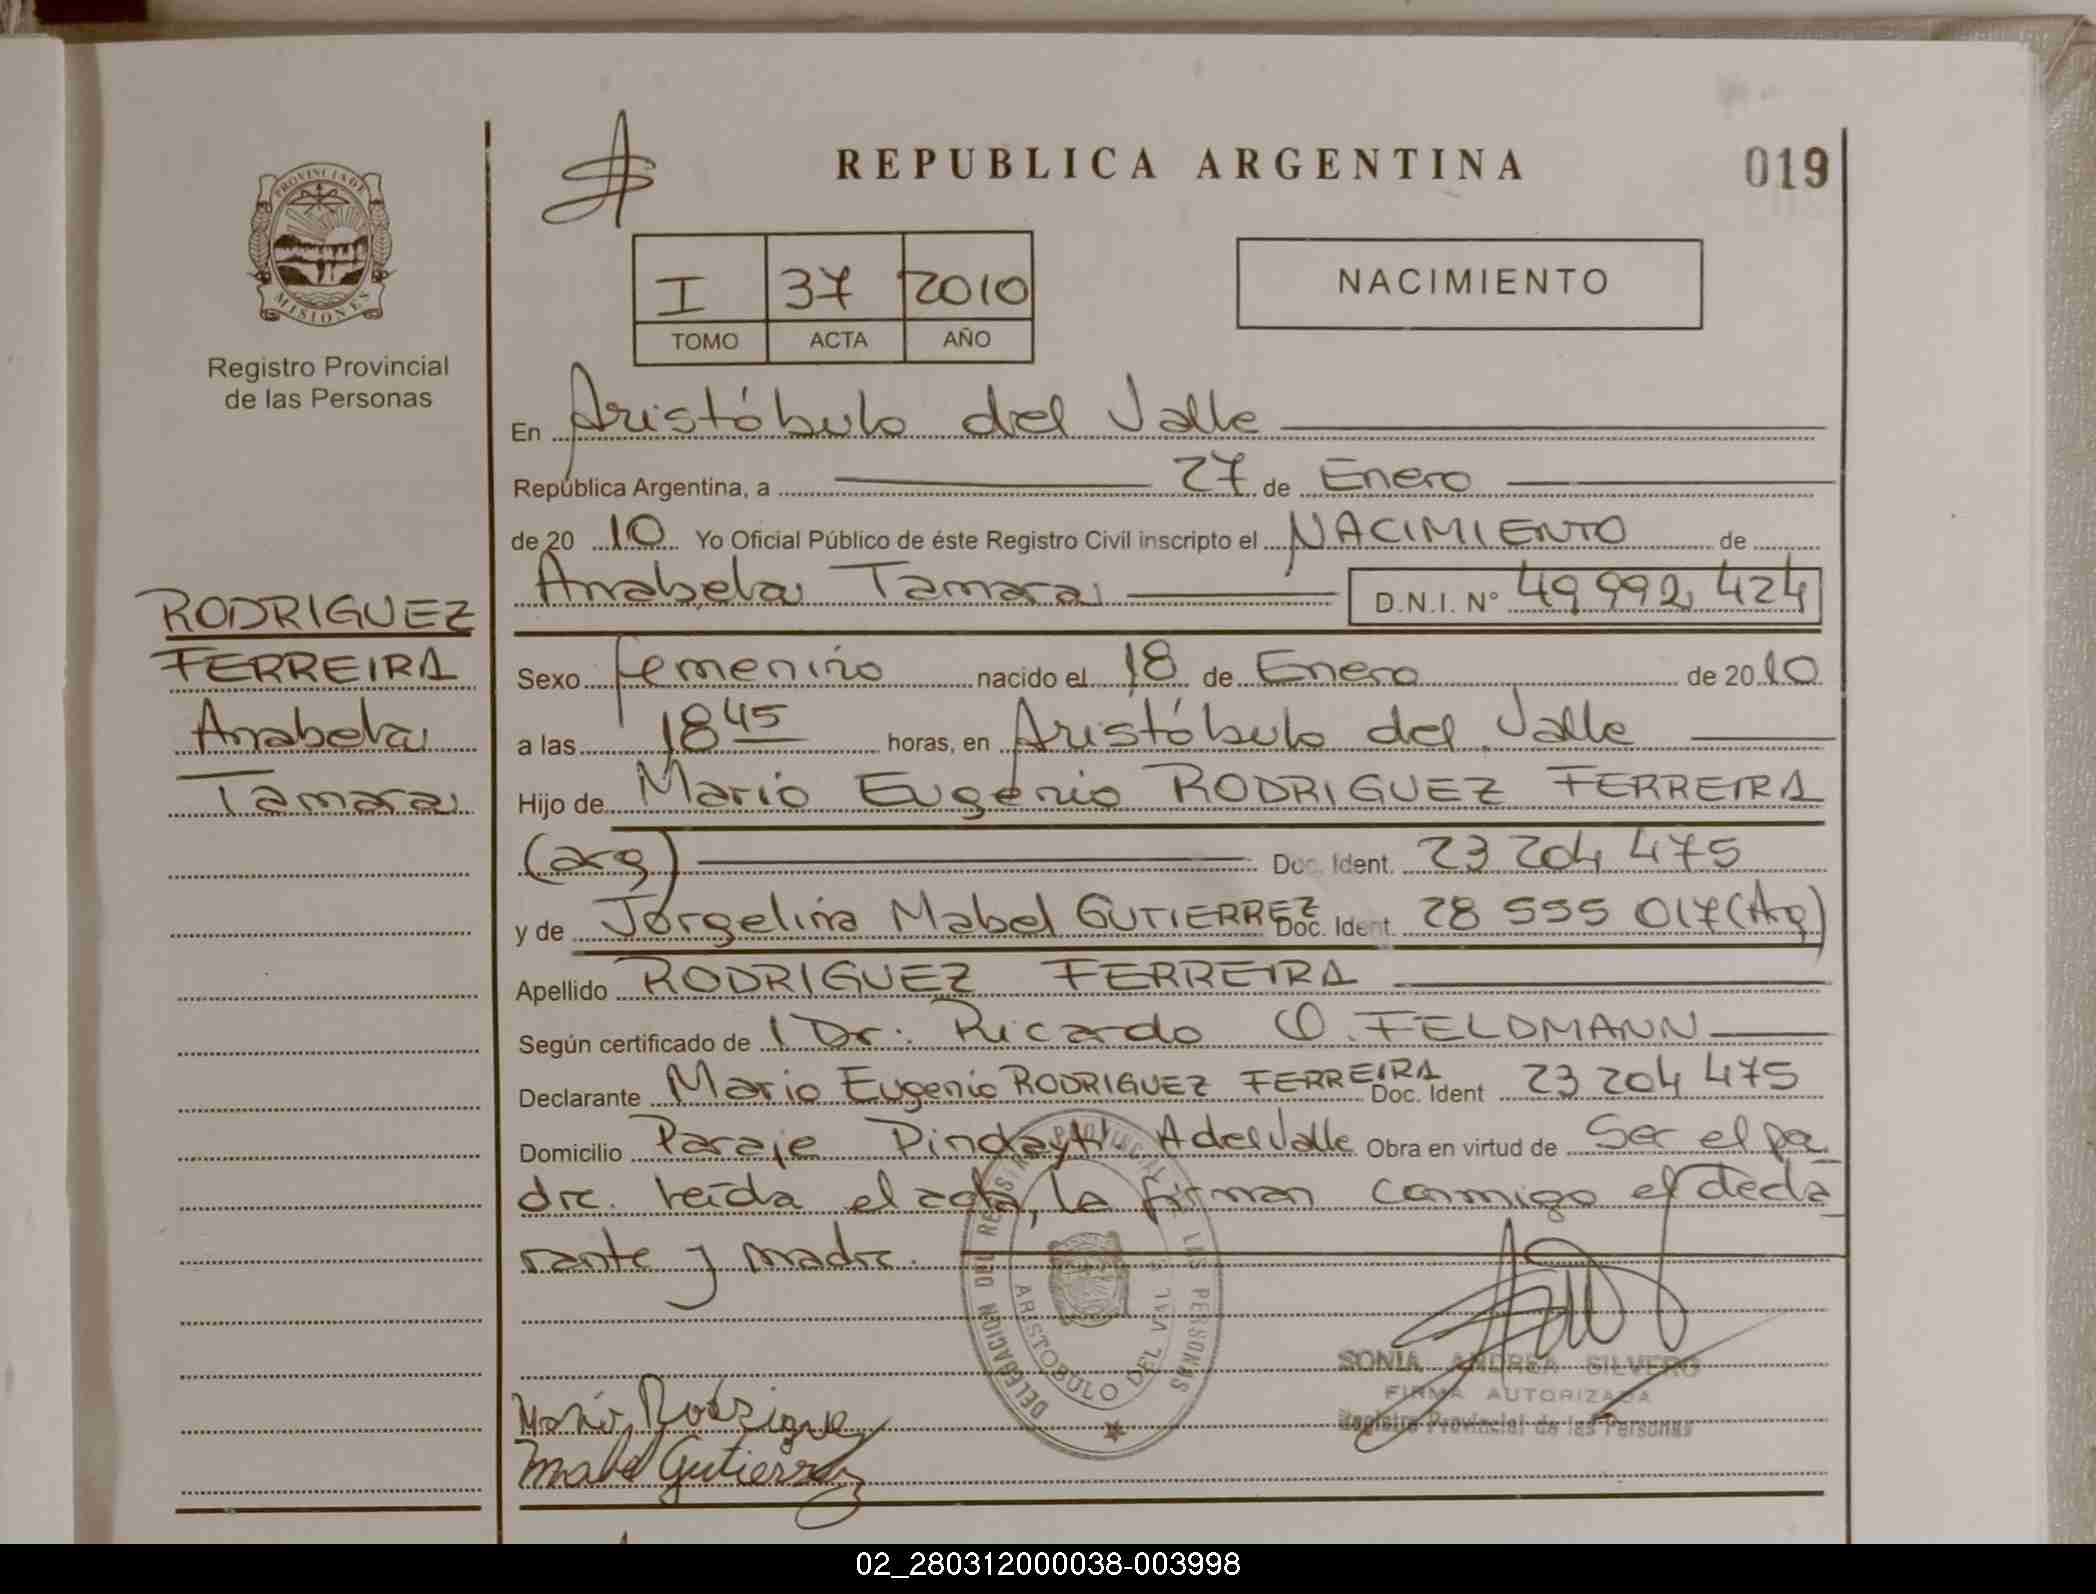 REPUBLICA ARGENTINA
019
PROVINCIA DE
MISIONES
Registro Provincial
de las Personas
I 37 2010
TOMO ACTA AÑO
NACIMIENTO
En Aristóbulo del Valle
República Argentina, a 27 de Enero
de 20 10 Yo Oficial Público de éste Registro Civil inscripto el NACIMIENTO de
Anabela Tamara D.N.I. N° 49 992 424
RODRIGUEZ
FERREIRA
Anabela
Tamara
Sexo femenino nacido el 18 de Enero de 20 10
a las 18 45 horas, en Aristóbulo del Valle
Hijo de Mario Eugenio RODRIGUEZ FERREIRA
(arg) Doc. Ident. 23 204 475
y de Jorgelina Mabel GUTIERREZ Doc. Ident. 28 555 017 (Arg)
Apellido RODRIGUEZ FERREIRA
Según certificado de l Dr: Ricardo O. FELDMANN
Declarante Mario Eugenio RODRIGUEZ FERREIRA Doc. Ident 23 204 475
Domicilio Paraje Pindayti A del Valle Obra en virtud de Ser el pa
dre. leída el acta, la firman conmigo el decla
rante y madre.
DELEGACION DEL REGISTRO PROVINCIAL DE LAS PERSONAS
ARISTOBULO DEL VALLE
SONIA ANDREA SILVERO
FIRMA AUTORIZADA
Registro Provincial de las Personas
Mario Rodrigue
Mabel Gutierrez
02_280312000038-003998